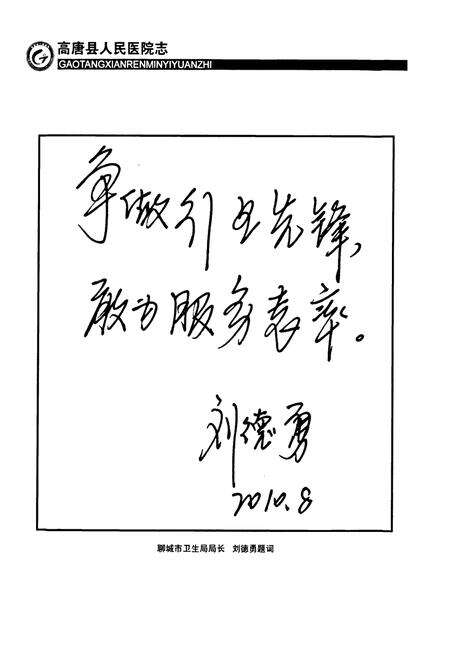 高唐县人民医院志
GAOTANGXIANRENMINYIYUANZHI
争做行业先锋,
敢为服务表率。
刘德勇
2010.8
聊城市卫生局局长 刘德勇题词